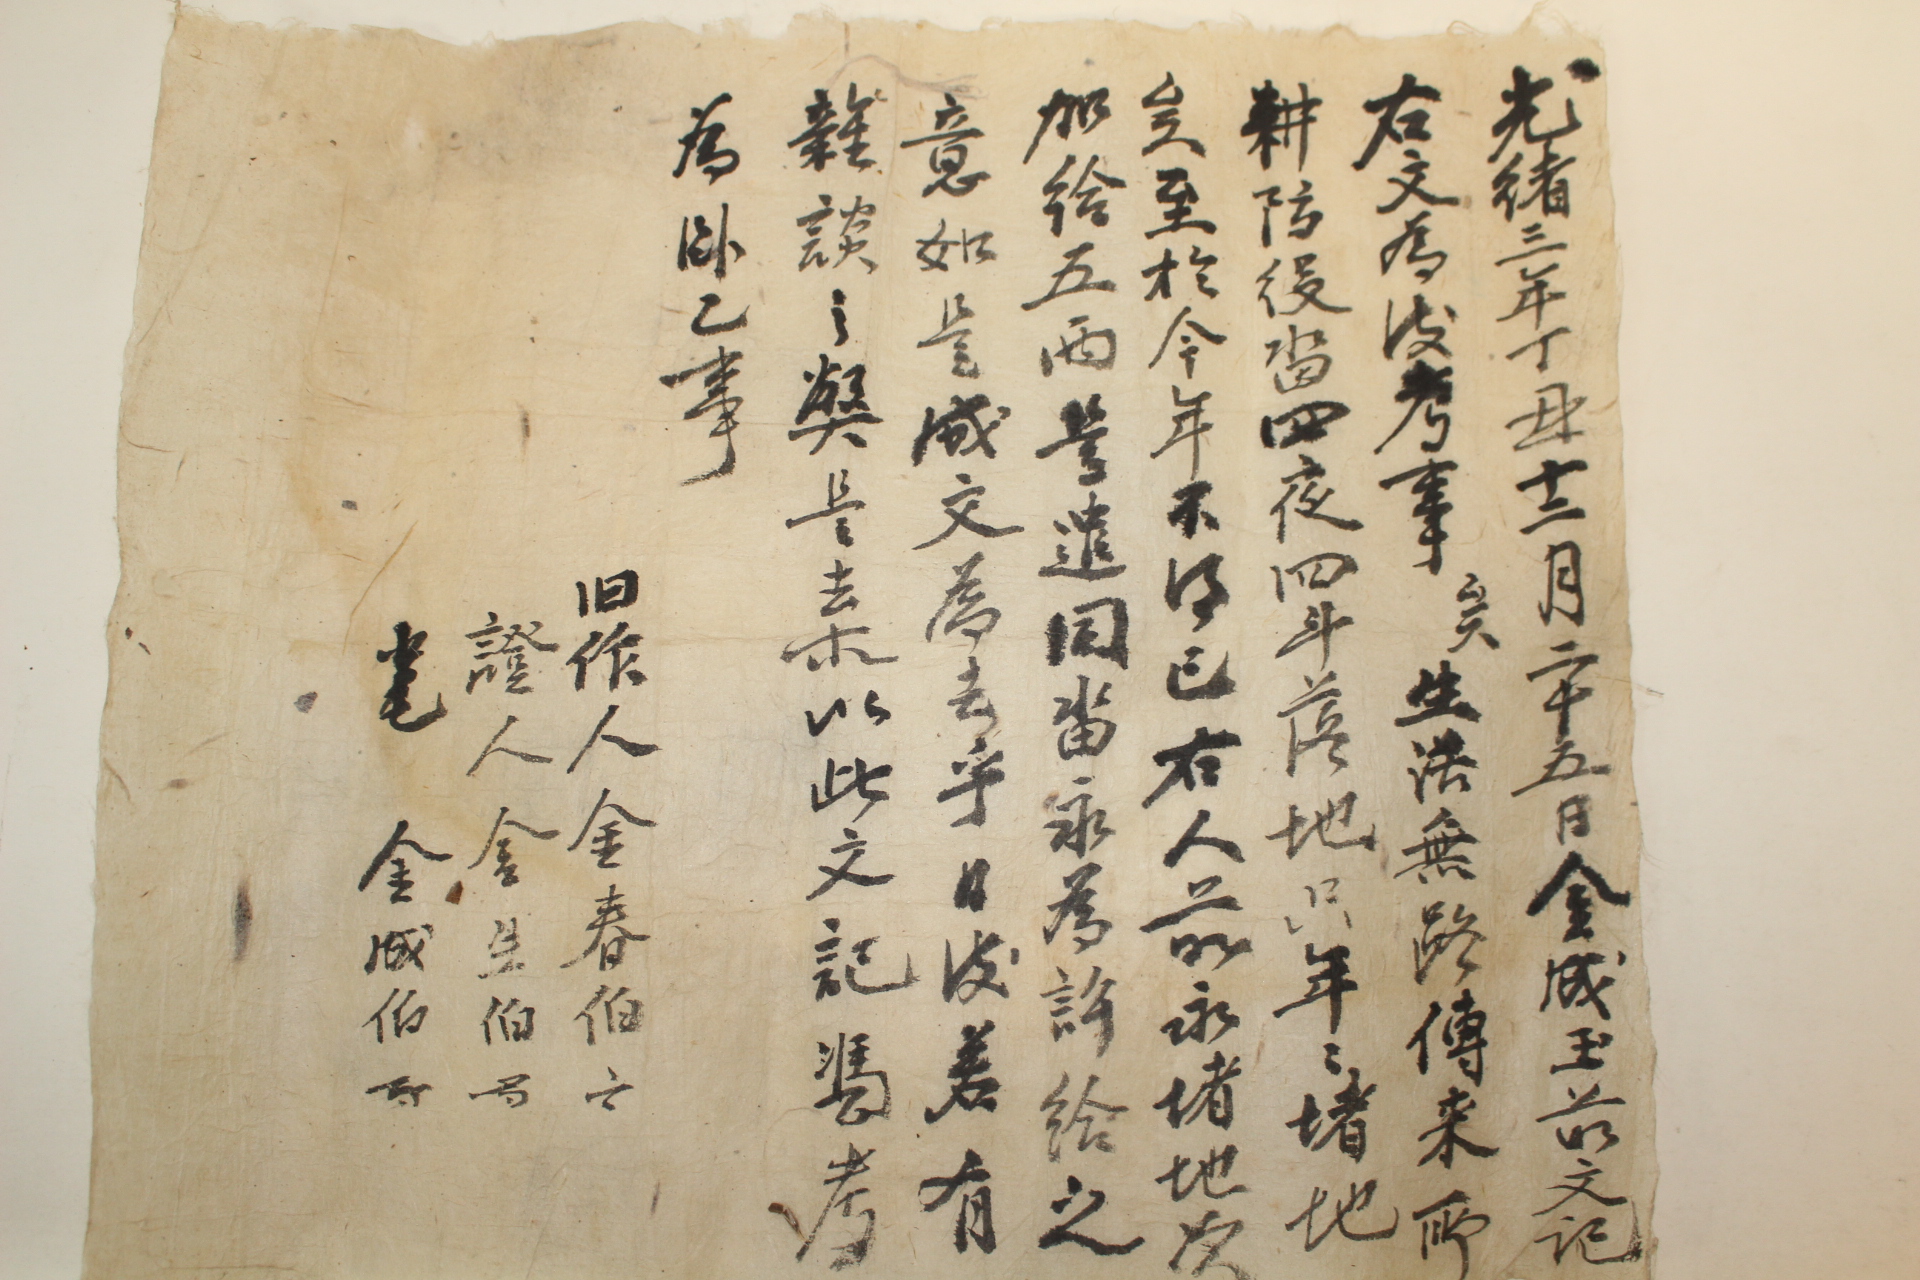 光緖三年丁丑十二月二十五日金成玉前文記
右文爲後考事矣生活無路傳來所
耕防役畓四夜四斗落地只年〻堵地
矣至於今年不得已右人前永堵地次
加給五両是遣同畓永爲許給之
意如是成文爲去乎日後若有
雜談之獘是去等以此文記憑考
爲卧乙事
旧作人金春伯
證人金生伯
筆 金成伯